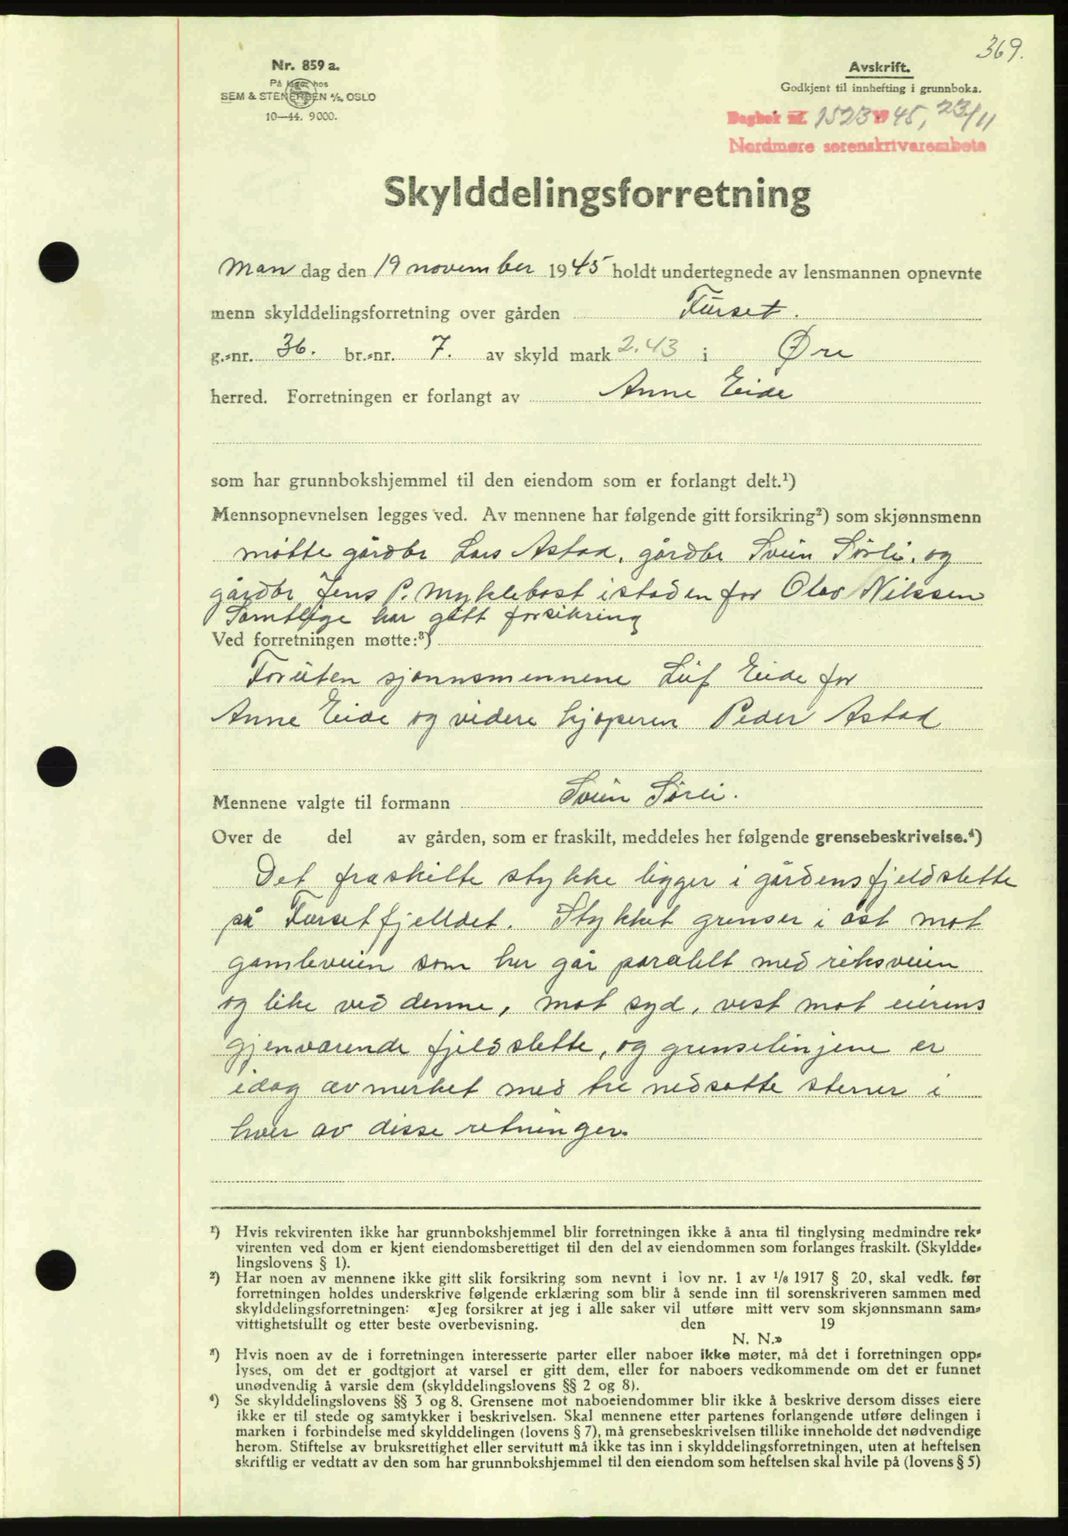 369.
Nr. 859 a.
På lager hos
SEM & STENERSEN A/S, OSLO
10—44. 9000.
Avskrift.
Godkjent til innhefting i grunnboka.
Dagbok nr. 1523 1945, 23/11
Nordmøre sorenskrivarembete
Skylddelingsforretning
Man dag den 19 november 1945 holdt undertegnede av lensmannen opnevnte
menn skylddelingsforretning over gården Furset.
g.-nr. 36. br.-nr. 7. av skyld mark 2.43 i Øre
herred. Forretningen er forlangt av Anne Eide
som har grunnbokshjemmel til den eiendom som er forlangt delt.¹)
Mennsopnevnelsen legges ved. Av mennene har følgende gitt forsikring²) som skjønnsmenn
møtte gårdbr Lars Astad, gårdbr Svein Sørli, og
gårdbr Jens P. Myklebost istaden for Olav Nilssen
Samtlige har gitt forsikring
Ved forretningen møtte:³)
Foruten sjønnsmennene Leif Eide for
Anne Eide og videre kjøperen Peder Astad
Mennene valgte til formann Svein Sørli.
Over de del av gården, som er fraskilt, meddeles her følgende grensebeskrivelse.⁴)
Det fraskilte stykke ligger i gårdens fjeldslette
på Fursetfjelldet. Stykket grenser i øst mot
gamleveien som her går paralelt med riksveien
og like ved denne, mot syd, vest mot eierens
gjenværende fjeldslette, og grenselinjene er
idag avmerket med tre nedsatte stener i
hver av disse retninger.
¹) Hvis rekvirenten ikke har grunnbokshjemmel blir forretningen ikke å anta til tinglysing medmindre rek-
virenten ved dom er kjent eiendomsberettiget til den del av eiendommen som forlanges fraskilt. (Skyldde-
lingslovens § 1).
²) Har noen av mennene ikke gitt slik forsikring som nevnt i lov nr. 1 av 1/8 1917 § 20, skal vedk. før
forretningen holdes underskrive følgende erklæring som blir å sende inn til sorenskriveren sammen med
skylddelingsforretningen: «Jeg forsikrer at jeg i alle saker vil utføre mitt verv som skjønnsmann sam-
vittighetsfullt og etter beste overbevisning. den 19
N. N.»
³) Hvis noen av de i forretningen interesserte parter eller naboer ikke møter, må det i forretningen opp-
lyses, om det er godtgjort at varsel er gitt dem, eller for naboers vedkommende om det er funnet
unødvendig å varsle dem (skylddelingslovens §§ 2 og 8).
⁴) Se skylddelingslovens §§ 3 og 8. Grensene mot naboeiendommer blir ikke å beskrive dersom disses eiere
ikke er til stede og samtykker i beskrivelsen. Skal mennene etter partenes forlangende utføre delingen i
marken i forbindelse med skylddelingen (lovens § 7), må grensebeskrivelsen tillike inneholde det nødvendige
herom. Stiftelse av bruksrettighet eller servitutt må ikke tas inn i skylddelingsforretningen, uten at heftelsen
skriftlig er vedtatt av den som har grunnbokshjemmel til den eiendom som heftelsen skal hvile på (lovens § 5)